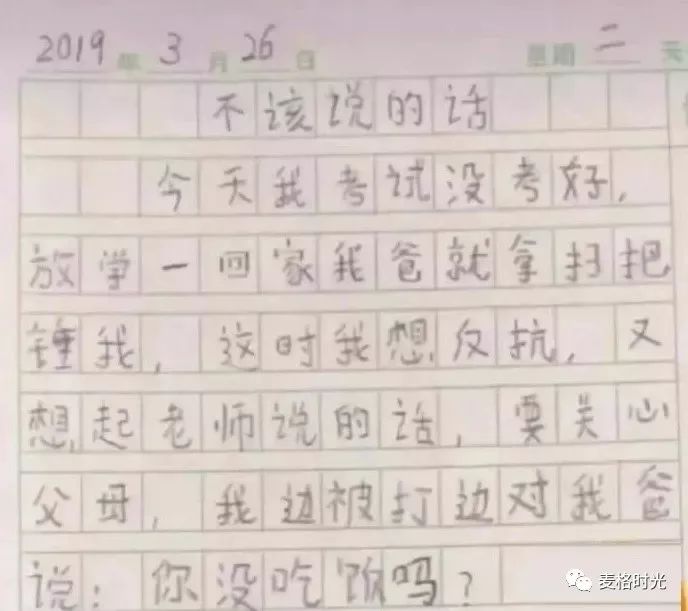 2019年3月26日 星期二 天
不该说的话
今天我考试没考好,
放学一回家我爸就拿扫把
锤我,这时我想反抗,又
想起老师说的话,要关心
父母,我边被打边对我爸
说:你没吃饭吗?
麦格时光